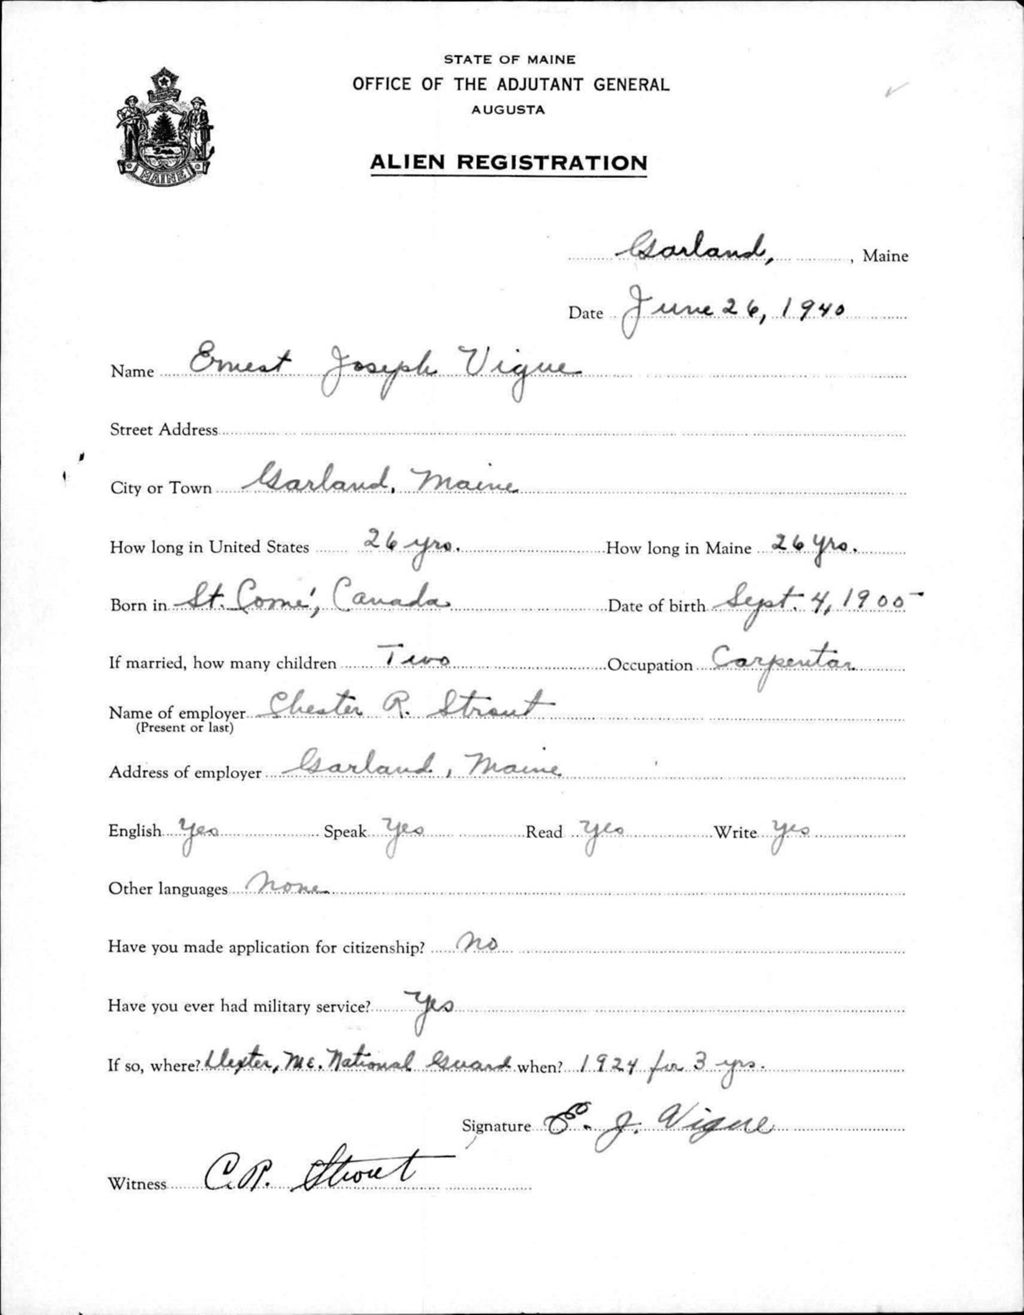 STATE OF MAINE
OFFICE OF THE ADJUTANT GENERAL
AUGUSTA
ALIEN REGISTRATION
MAINE
Garland, , Maine
Date June 26, 1940
Name Ernest Joseph Vigue
Street Address
City or Town Garland, Maine
How long in United States 26 yrs. How long in Maine 26 yrs.
Born in St. Comé, Canada Date of birth Sept. 4, 1900
If married, how many children Two Occupation Carpentar
Name of employer Chester R. Strout
(Present or last)
Address of employer Garland, Maine
English Yes Speak Yes Read Yes Write Yes
Other languages None
Have you made application for citizenship? No
Have you ever had military service? Yes
If so, where? Dexter, Me. National Guard when? 1924 for 3 yrs.
Signature E. J. Vigue
Witness C.R. Strout